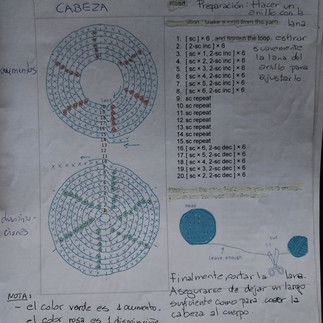 CABEZA
Head
Preparación: Hacer un
anillo con la
lana
1. [ sc ] × 6 and tighten the loop.
estirar
2. [ 2-sc inc ] × 6
suavemente
3. [ sc + 1, 2-sc inc ] × 6
la lana del
4. [ sc + 2, 2-sc inc ] × 6
anillo para
5. [ sc + 3, 2-sc inc ] × 6
ajustarlo
6. [ sc × 4, 2-sc inc ] × 6
7. [ sc × 5, 2-sc inc ] × 6
8. [ sc × 6, 2-sc inc ] × 6
9. sc repeat
10. sc repeat
11. sc repeat
12. sc repeat
13. sc repeat
14. sc repeat
15. sc repeat
16. [ sc × 6, 2-sc dec ] × 6
17. [ sc × 5, 2-sc dec ] × 6
18. [ sc × 4, 2-sc dec ] × 6
19. [ sc × 3, 2-sc dec ] × 6
20. [ sc × 2, 2-sc dec ] × 6
aumentos
head
cut
leave enough
Finalmente, cortar la lana.
Asegurarse de dejar un largo
suficiente como para coser la
cabeza al cuerpo.
NOTA:
- el color verde es 1 aumento.
el color rosa es 1 disminución